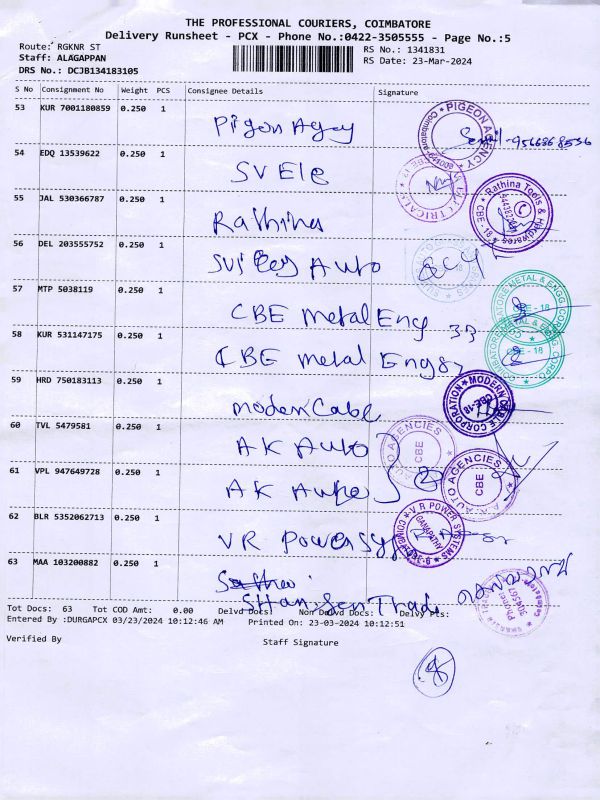 THE PROFESSIONAL COURIERS, COIMBATORE
Delivery Runsheet - PCX - Phone No.:0422-3505555 - Page No.:5
Route: RGKNR ST RS No.: 1341831
Staff: ALAGAPPAN RS Date: 23-Mar-2024
DRS No.: DCJB134183105
S No Consignment No Weight PCS Consignee Details Signature
53 KUR 7001180859 0.250 1
Pigeon Agcy
PIGEON AGENCY
54 EDQ 13539622 0.250 1
SV Ele
ELECTRICALS
55 JAL 530366787 0.250 1
Rathina
Rathina Tools & Hardwares
CBE - 18
56 DEL 203555752 0.250 1
Auto
57 MTP 5038119 0.250 1
CBE Metal Eng
COIMBATORE METAL & ENGG CORPO
CBE - 18
58 KUR 531147175 0.250 1
CBE metal Engg
COIMBATORE METAL & ENGG CORPO
CBE - 18
59 HRD 750183113 0.250 1
modern Cable
MODERN CABLE CORPORATION
CBE-18
60 TVL 5479581 0.250 1
AK Auto
AUTO AGENCIES
CBE
61 VPL 947649728 0.250 1
AK Auto
A.K AUTO AGENCIES
CBE
62 BLR 5352062713 0.250 1
VR Power Sys
V R POWER SYSTEMS
GANAPATHY
63 MAA 103200882 0.250 1
Shan Sen Trade
Tot Docs: 63 Tot COD Amt: 0.00 Delvd Docs: Non Delvd Docs: Delvy Pts:
Entered By :DURGAPCX 03/23/2024 10:12:46 AM Printed On: 23-03-2024 10:12:51
Verified By Staff Signature